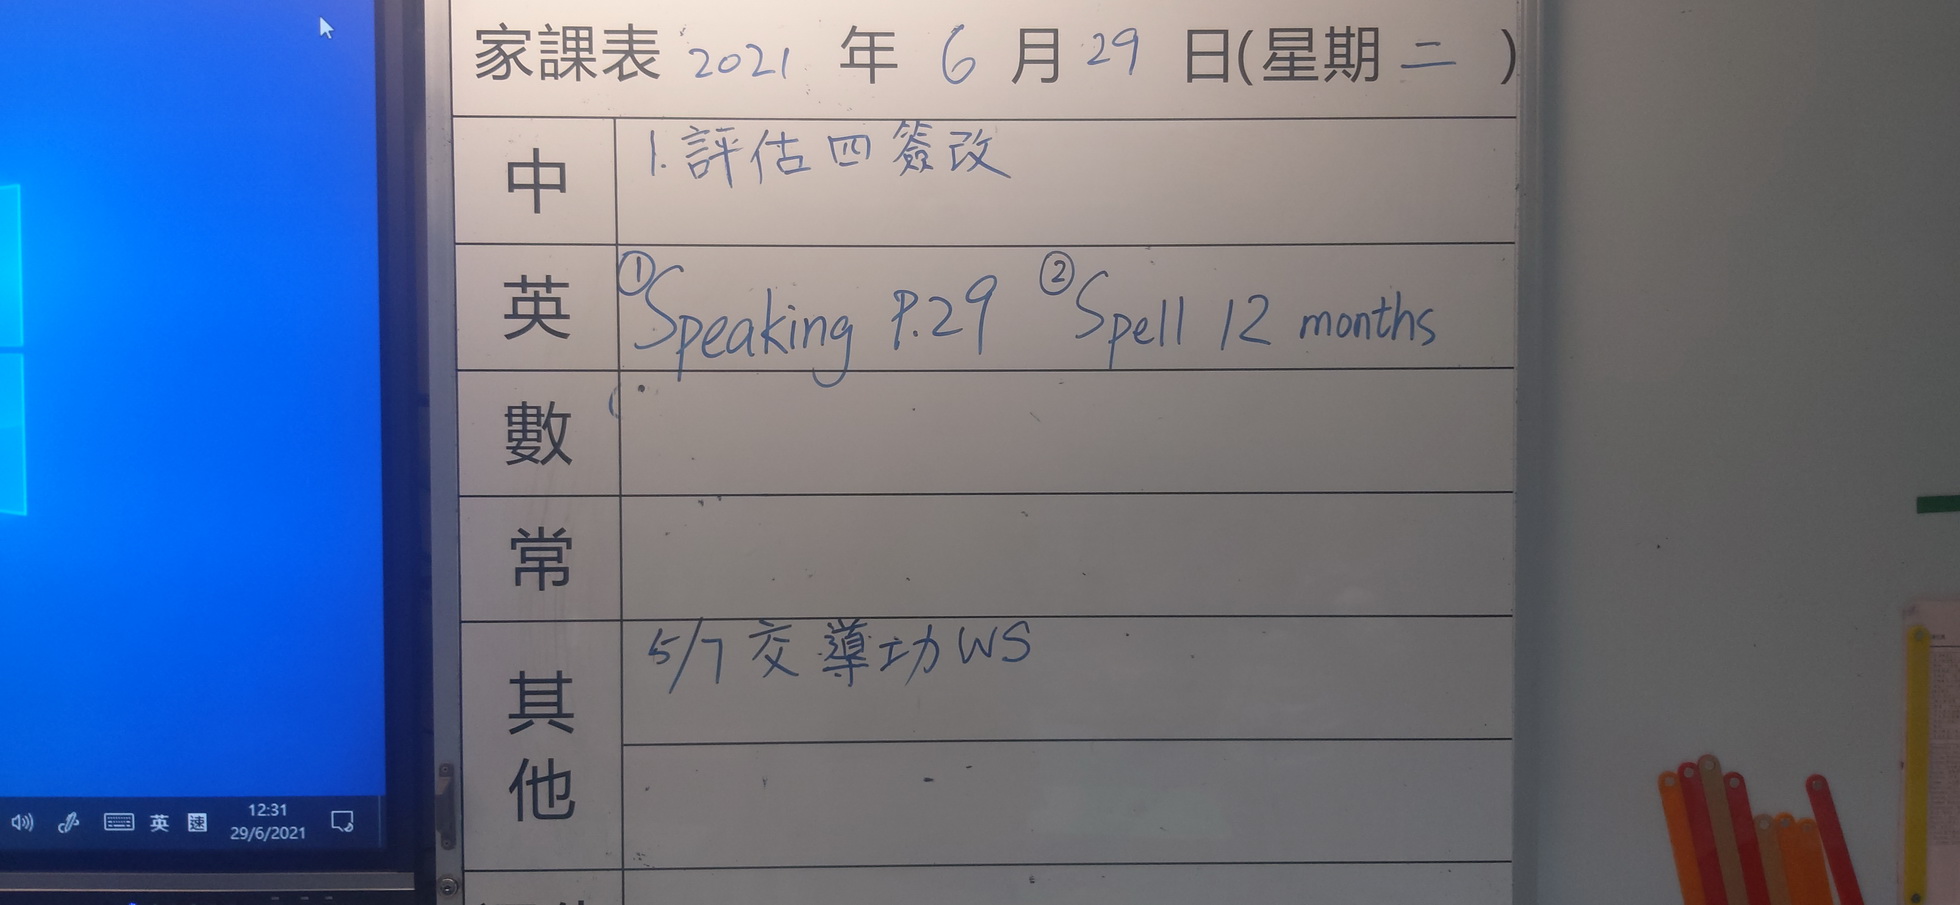 家課表 2021 年 6 月 29 日(星期二)
中
1. 評估四簽改
英
①Speaking P.29 ②Spell 12 months
數
常
其他
5/7 交導功WS
英
速
12:31
29/6/2021